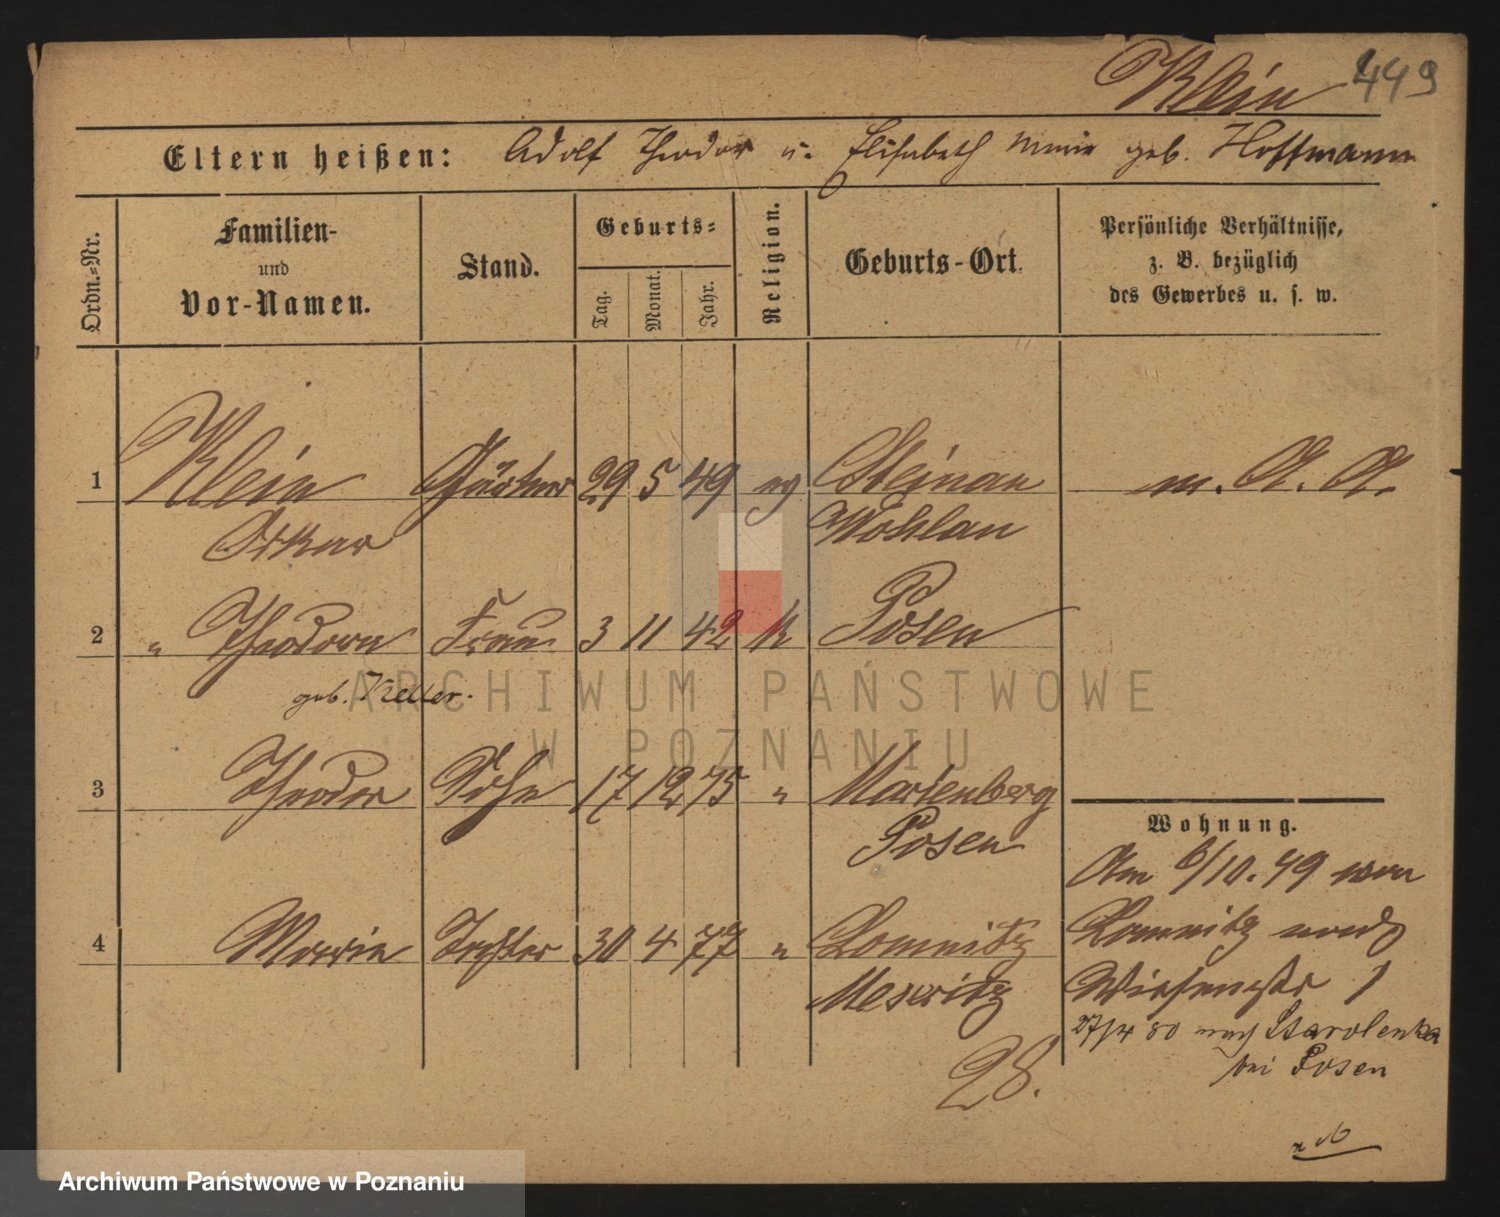 Klein 449
Eltern heißen: Adolf Theodor u. Elisabeth Marie geb. Hoffmann
Ordn.=Nr.
Familien-
und
Vor-Namen.
Stand.
Geburts=
Tag. Monat. Jahr.
Religion.
Geburts-Ort.
Persönliche Verhältnisse,
z. B. bezüglich
des Gewerbes u. s. w.
1 Klein Gärtner 29 5 49 ev Steinau m. A. A.
Oskar Wohlau
2 " Theodora Frau 3 11 42 k Posen
geb. Keller.
3 Theodor Sohn 17 12 75 " Marienberg
Posen
4 Marie Tochter 30 4 77 " Lomnitz
Meseritz
28.
Wohnung.
Am 6/10. 79 von
Lomnitz nach
Wiesenstr 1
27/4 80 nach Starolenka
bei Posen
ARCHIWUM PAŃSTWOWE
W POZNANIU
Archiwum Państwowe w Poznaniu